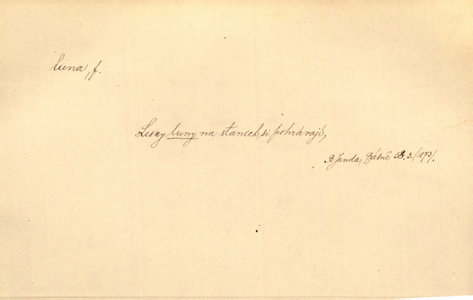 luna, f.
Lesky luny na stanech si pohrávají,
B. Janda, Básně 3. (1873).